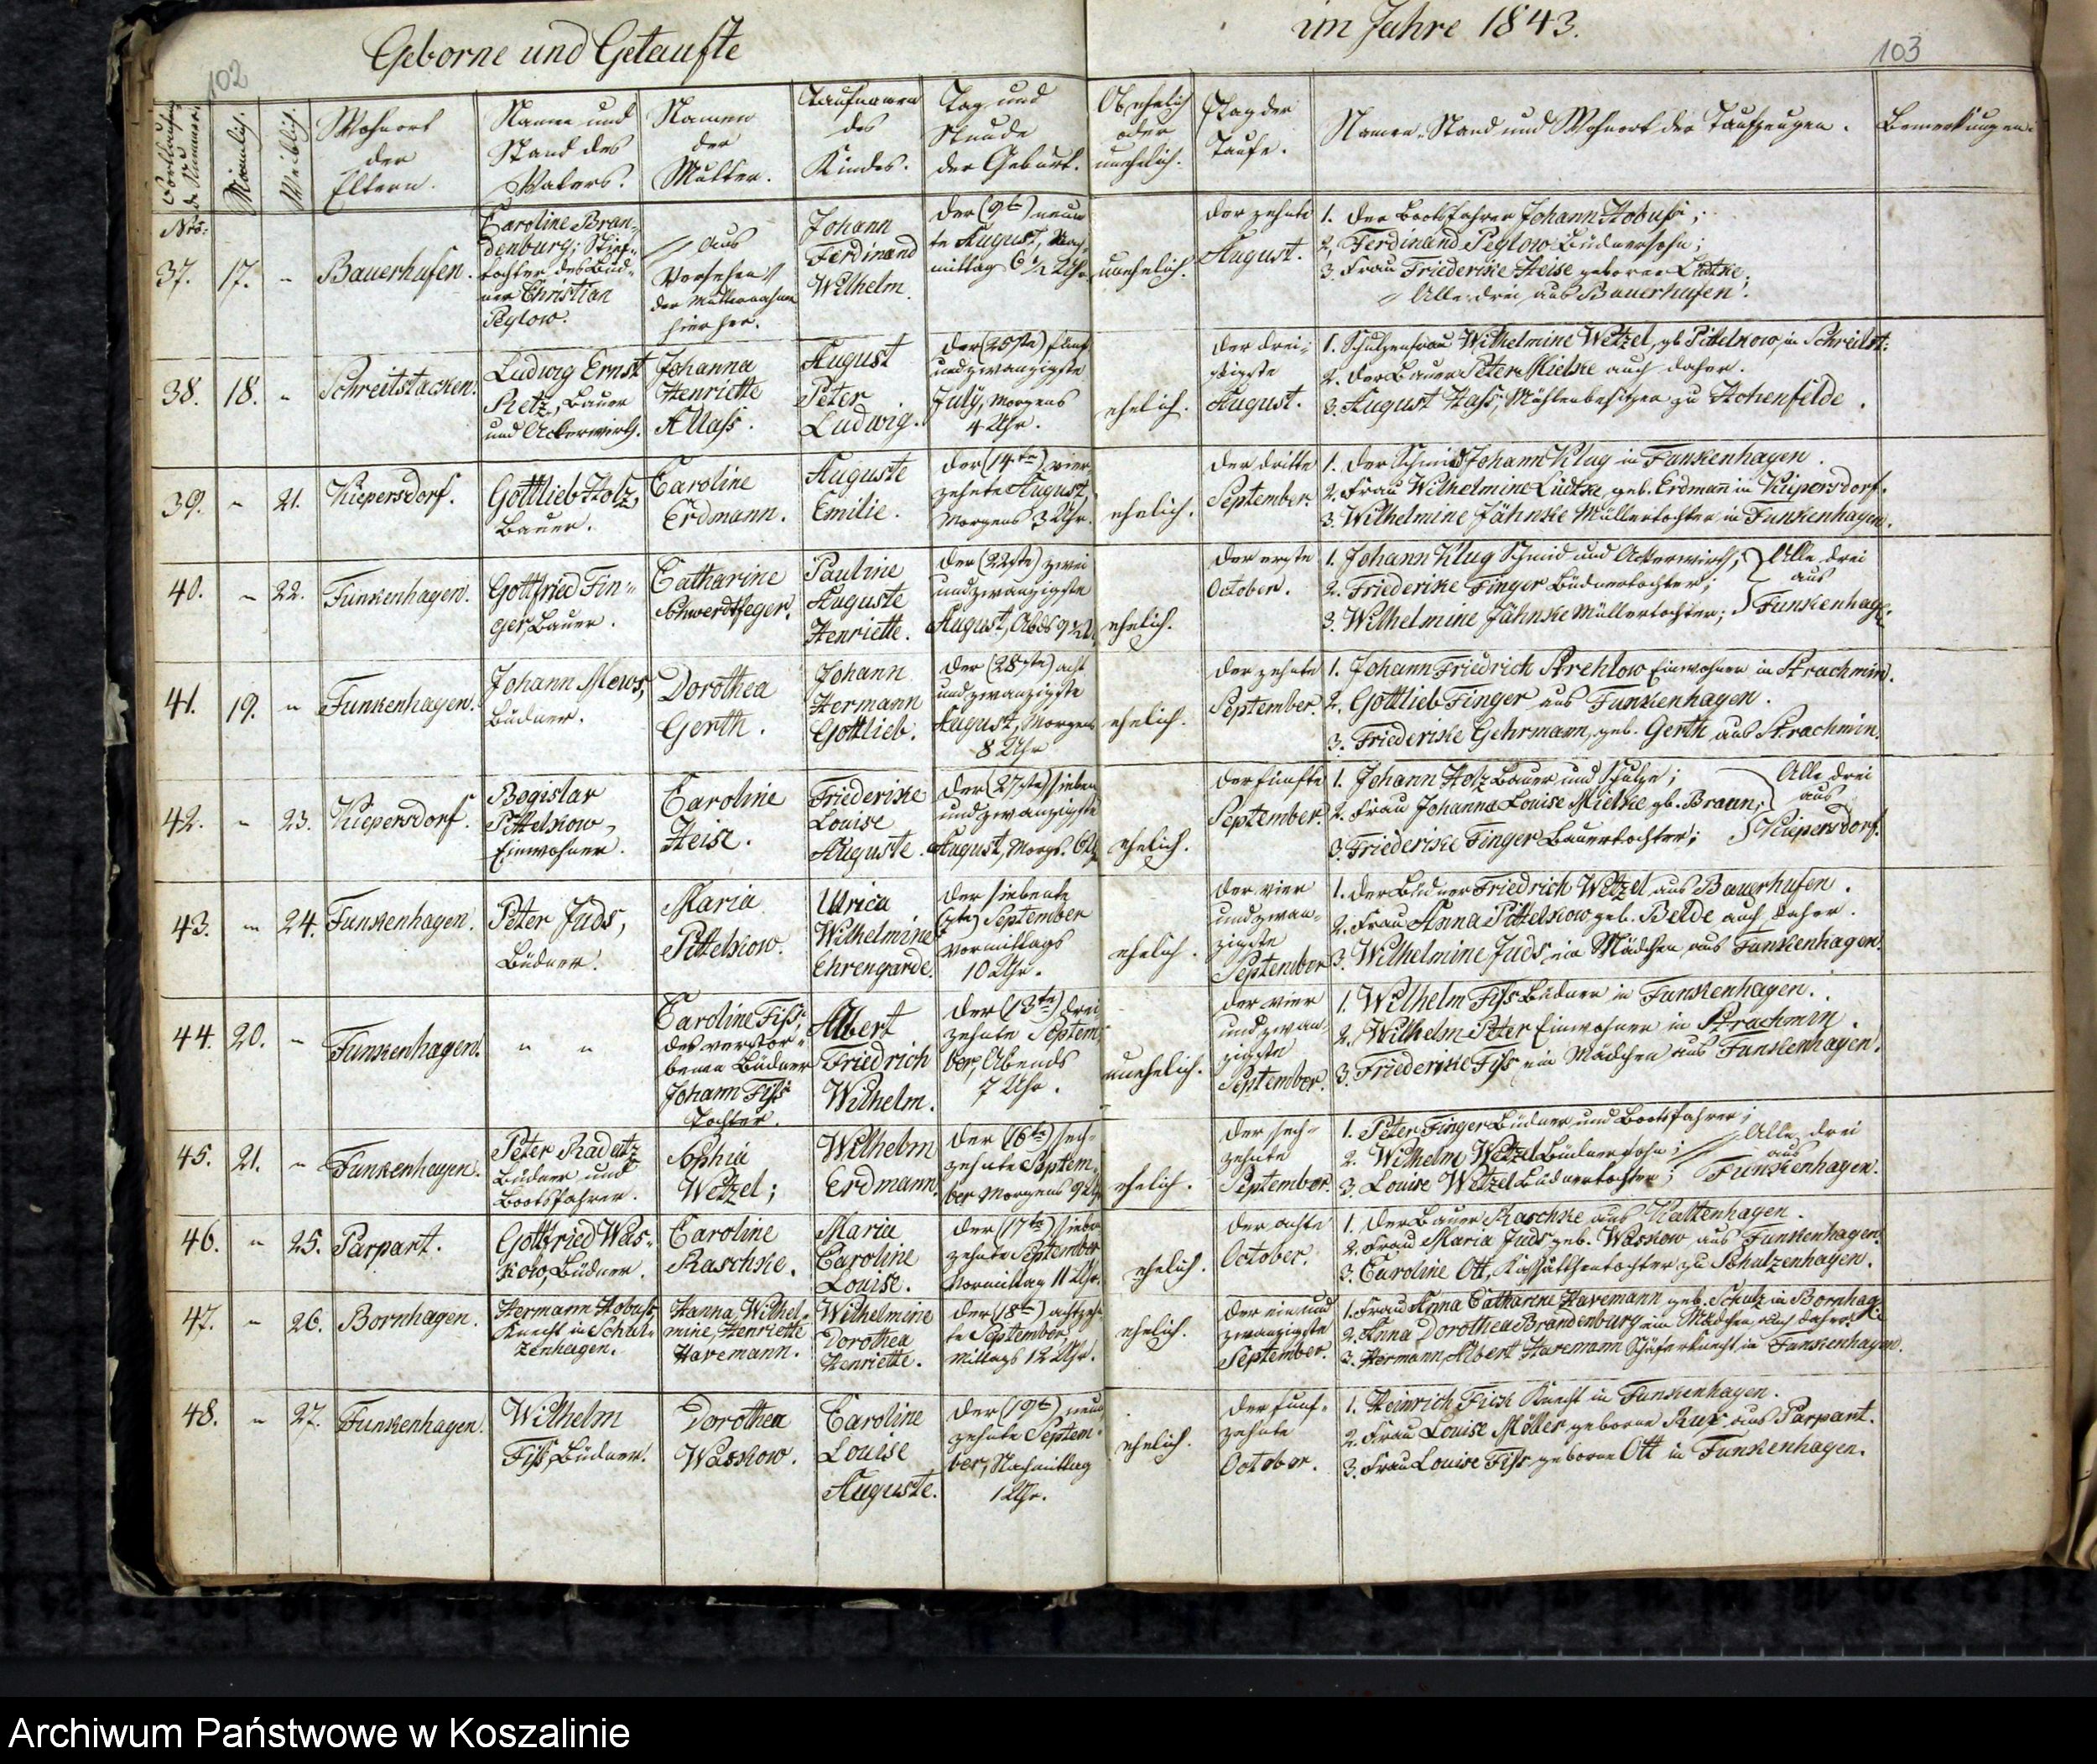 102
Geborne und Getaufte
im Jahre 1843.
103
Fortlaufende Nummer.
Männlich.
Weiblich.
Wohnort
der
Eltern.
Name und
Stand des
Vaters.
Namen
der
Mutter.
Taufnamen
des
Kindes.
Tag und
Stunde
der Geburt.
Ob ehelich
oder
unehelich.
Tag der
Taufe.
Namen, Stand und Wohnort der Taufzeugen.
Bemerkungen.
Nro:
37. 17. " Bauerhufen.
Caroline Bran-
denburg; Stief-
tochter des Büd-
ner Christian
Peglow.
aus
Versehen
der Muttername
hierher.
Johann
Ferdinand
Wilhelm.
der (9te) neun
te August, Nach
mittag 6 1/2 Uhr.
unehelich.
der zehnte
August.
1. der Bootsfahrer Johann Hobuss;
2. Ferdinand Peglow Büdnersohn;
3. Frau Friederike Heise geborne Lüdtke;
Alle drei aus Bauerhufen.
38. 18. " Schreitstacken.
Ludwig Ernst
Retz, Bauer
und Ackerwirth.
Johanna
Henriette
Maß.
August
Peter
Ludwig.
der (25ste) fünf
und zwanzigste
July, Morgens
4 Uhr.
ehelich.
der drei-
ßigste
August.
1. Schulzenfrau Wilhelmine Wetzel, gb Pittelkow, in Schreitst:
2. der Bauer Peter Mielke auch daher.
3. August Haß, Mühlenbesitzer zu Hohenfelde.
39. " 21. Kiepersdorf.
Gottlieb Holz,
Bauer.
Caroline
Erdmann.
Auguste
Emilie.
der (14te) vier
zehnte August,
Morgens 3 Uhr.
ehelich.
der dritte
September.
1. der Schmid Johann Klug in Funkenhagen.
2. Frau Wilhelmine Lüdtke, geb. Erdmann in Kiepersdorf.
3. Wilhelmine Jähnke Müllertochter in Funkenhagen.
40. " 22. Funkenhagen.
Gottfried Fin-
ger, Bauer.
Catharine
Schwerdtfeger.
Pauline
Auguste
Henriette.
der (22ste) zwei
und zwanzigste
August, Abds 9 Uhr
ehelich.
der erste
October.
1. Johann Klug Schmid und Ackerwirth;
2. Friederike Finger Büdnertochter;
3. Wilhelmine Jähnke Müllertochter;
Alle drei
aus
Funkenhag:
41. 19. " Funkenhagen.
Johann Mews,
Büdner.
Dorothea
Gerth.
Johann
Hermann
Gottlieb.
der (28ste) acht
und zwanzigste
August, Morgens
8 Uhr
ehelich.
der zehnte
September.
1. Johann Friedrich Strehlow Einwohner in Strachmin.
2. Gottlieb Finger aus Funkenhagen.
3. Friederike Gehrmann, geb. Gerth aus Strachmin.
42. " 23. Kiepersdorf.
Bogislav
Pittelkow,
Einwohner.
Caroline
Heise.
Friederike
Louise
Auguste.
der (27ste) sieben
und zwanzigste
August, Morgs. 6 Uhr
ehelich.
der fünfte
September.
1. Johann Holz Bauer und Schulze;
2. Frau Johanna Louise Mielke gb. Braun;
3. Friederike Finger Bauertochter;
Alle drei
aus
Kiepersdorf.
43. " 24. Funkenhagen.
Peter Juds,
Büdner.
Maria
Pittelkow.
Ulrica
Wilhelmine
Ehrengarde.
der siebente
(7te) September
Vormittags
10 Uhr.
ehelich.
der vier
und zwan-
zigste
September
1. der Büdner Friedrich Wetzel aus Bauerhufen.
2. Frau Anna Pittelkow geb. Belde auch daher.
3. Wilhelmine Juds, ein Mädchen aus Funkenhagen.
44. 20. " Funkenhagen.
" "
Caroline Fiß,
des verstor-
benen Büdner
Johann Fiß
Tochter.
Albert
Friedrich
Wilhelm.
der (13te) drei
zehnte Septem
ber, Abends
7 Uhr.
unehelich.
der vier
und zwan-
zigste
September.
1. Wilhelm Fiß Büdner in Funkenhagen.
2. Wilhelm Peter Einwohner in Strachmin.
3. Friederike Fiß ein Mädchen aus Funkenhagen.
45. 21. " Funkenhagen.
Peter Radatz
Büdner und
Bootsfahrer.
Sophia
Wetzel;
Wilhelm
Erdmann.
der (16te) sech-
zehnte Septem-
ber Morgens 9 Uhr
ehelich.
der sech-
zehnte
September.
1. Peter Finger Büdner und Bootsfahrer;
2. Wilhelm Wetzel Büdnersohn;
3. Louise Wetzel Büdnertochter;
Alle drei
aus
Funkenhagen.
46. " 25. Parpart.
Gottfried Was-
kow, Büdner.
Caroline
Raschke.
Maria
Caroline
Louise.
der (17te) sieben
zehnte September
Vormittag 11 Uhr.
ehelich.
der achte
October.
1. der Bauer Raschke aus Kaltenhagen.
2. Frau Maria Juds geb. Waskow aus Funkenhagen.
3. Caroline Ott, Kossäthentochter zu Schulzenhagen.
47. " 26. Bornhagen.
Hermann Hobuss
Knecht in Schul-
zenhagen.
Hanna Wilhel-
mine, Henriette
Havemann.
Wilhelmine
Dorothea
Henriette.
der (18te) achtzehn
te September
Mittags 12 Uhr.
ehelich.
der ein und
zwanzigste
September.
1. Frau Anna Catharine Havemann geb. Schulz in Bornhag:
2. Anna Dorothea Brandenburg ein Mädchen auch daher.
3. Hermann Albert Havemann Schäferknecht in Funkenhagen.
48. " 27. Funkenhagen.
Wilhelm
Fiß, Büdner.
Dorothea
Waskow.
Caroline
Louise
Auguste.
der (19te) neun
zehnte Septem-
ber, Nachmittag
1 Uhr.
ehelich.
der fünf-
zehnte
October.
1. Heinrich Fick Knecht in Funkenhagen.
2. Frau Louise Möller geborne Kux aus Parpart.
3. Frau Louise Fiß geborne Ott in Funkenhagen.
Archiwum Państwowe w Koszalinie